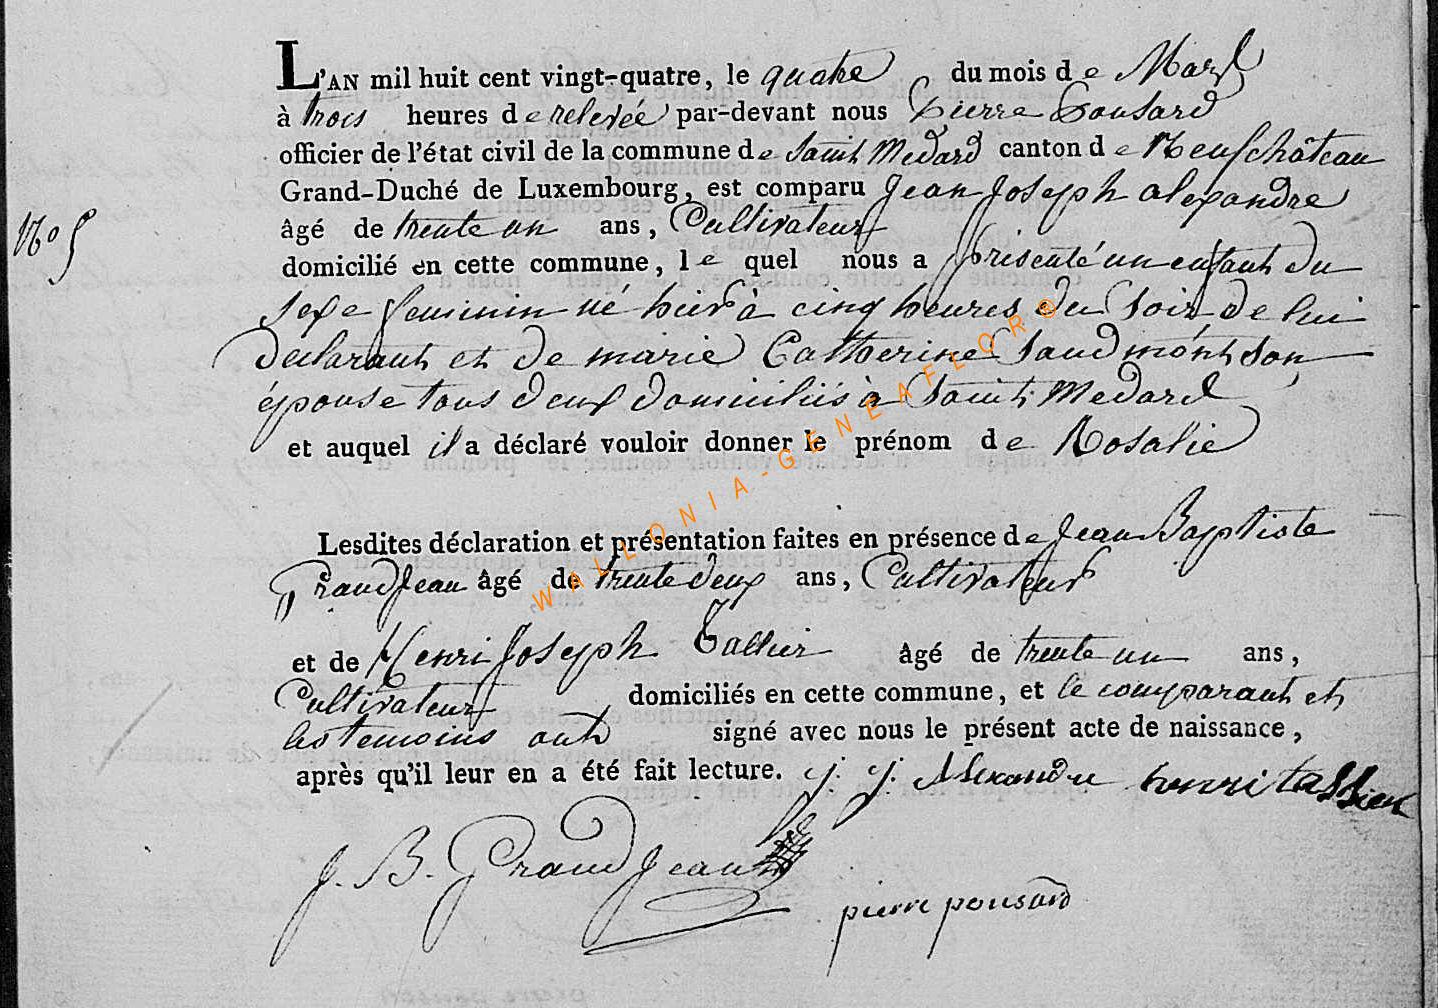 L'AN mil huit cent vingt-quatre, le quatre du mois de Mars
à trois heures de relevée par-devant nous Pierre Ponsard
officier de l'état civil de la commune de Saint Medard canton de Neufchâteau
Grand-Duché de Luxembourg, est comparu Jean Joseph alexandre
âgé de trente un ans, Cultivateur
N° 5
domicilié en cette commune, le quel nous a présenté un enfant du
sexe feminin né hier à cinq heures du soir de lui
declarant et de marie Catherine Saudmont son
épouse tous deux domiciliés à Saint Medard
et auquel il a déclaré vouloir donner le prénom de Rosalie
Lesdites déclaration et présentation faites en présence de Jean Baptiste
GrandJean âgé de trente deux ans, Cultivateur
et de Henri Joseph âgé de trente un ans,
Cultivateur domiciliés en cette commune, et le comparant et
les temoins ont signé avec nous le présent acte de naissance,
après qu'il leur en a été fait lecture. j. j. Alexandre henri tassier
J. B. GrandJean
pierre ponsard
WALLONIA-GENEAFLOR©